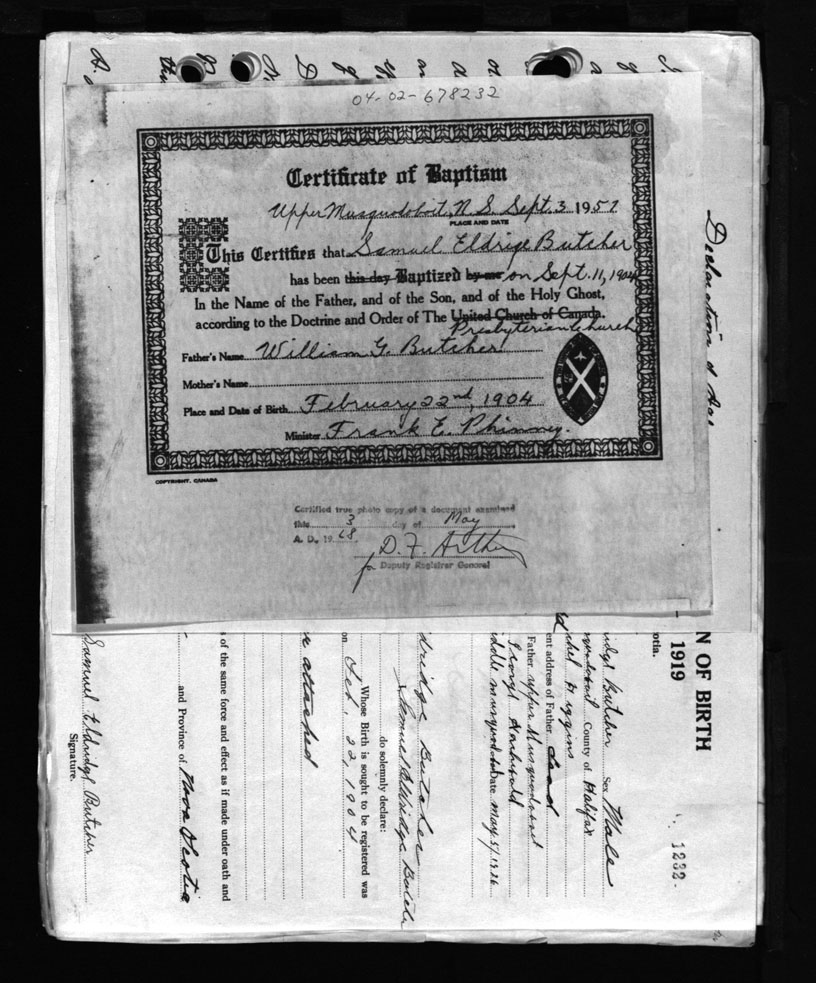 04-02-678232
Certificate of Baptism
Upper Musquodoboit, N.S. Sept. 3 1957
PLACE AND DATE
This Certifies that Samuel Eldrige Butcher
has been this day Baptized by me on Sept. 11, 1904
In the Name of the Father, and of the Son, and of the Holy Ghost,
according to the Doctrine and Order of The United Church of Canada.
Presbyterian Church
Father's Name William G. Butcher
Mother's Name
Place and Date of Birth February 22nd, 1904
Minister Frank E. Phinney.
COPYRIGHT, CANADA
Certified true photo copy of a document examined
this 3 day of May
A. D. 19 68
D. F.
for Deputy Registrar General
Declaration of
N OF BIRTH
1919
1232.
otia.
Butcher Sex Male
County of Halifax
Higgins
ent address of Father dead
Father upper Musquodoboit
George Archibald
Musquodoboit Date May 5/1926
dridge Butcher
Samuel Eldridge Butcher
do solemnly declare:
Whose Birth is sought to be registered was
on Feb. 22, 1904
attached
s of the same force and effect as if made under oath and
and Province of Nova Scotia
Samuel Eldridge Butcher
Signature.